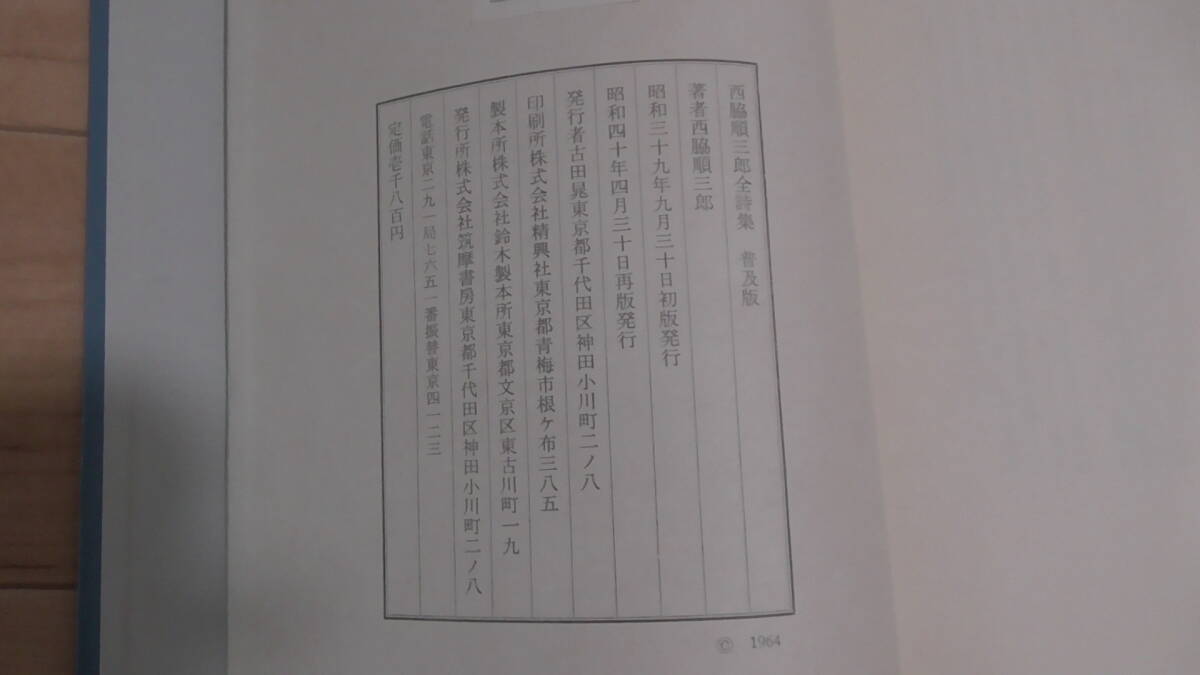 西脇順三郎全詩集　普及版
著者西脇順三郎
昭和三十九年九月三十日初版発行
昭和四十年四月三十日再版発行
発行者古田晁東京都千代田区神田小川町二ノ八
印刷所株式会社精興社東京都青梅市根ケ布三八五
製本所株式会社鈴木製本所東京都文京区東古川町一九
発行所株式会社筑摩書房東京都千代田区神田小川町二ノ八
電話東京二九一局七六五一番振替東京四一二三
定価壱千八百円
© 1964